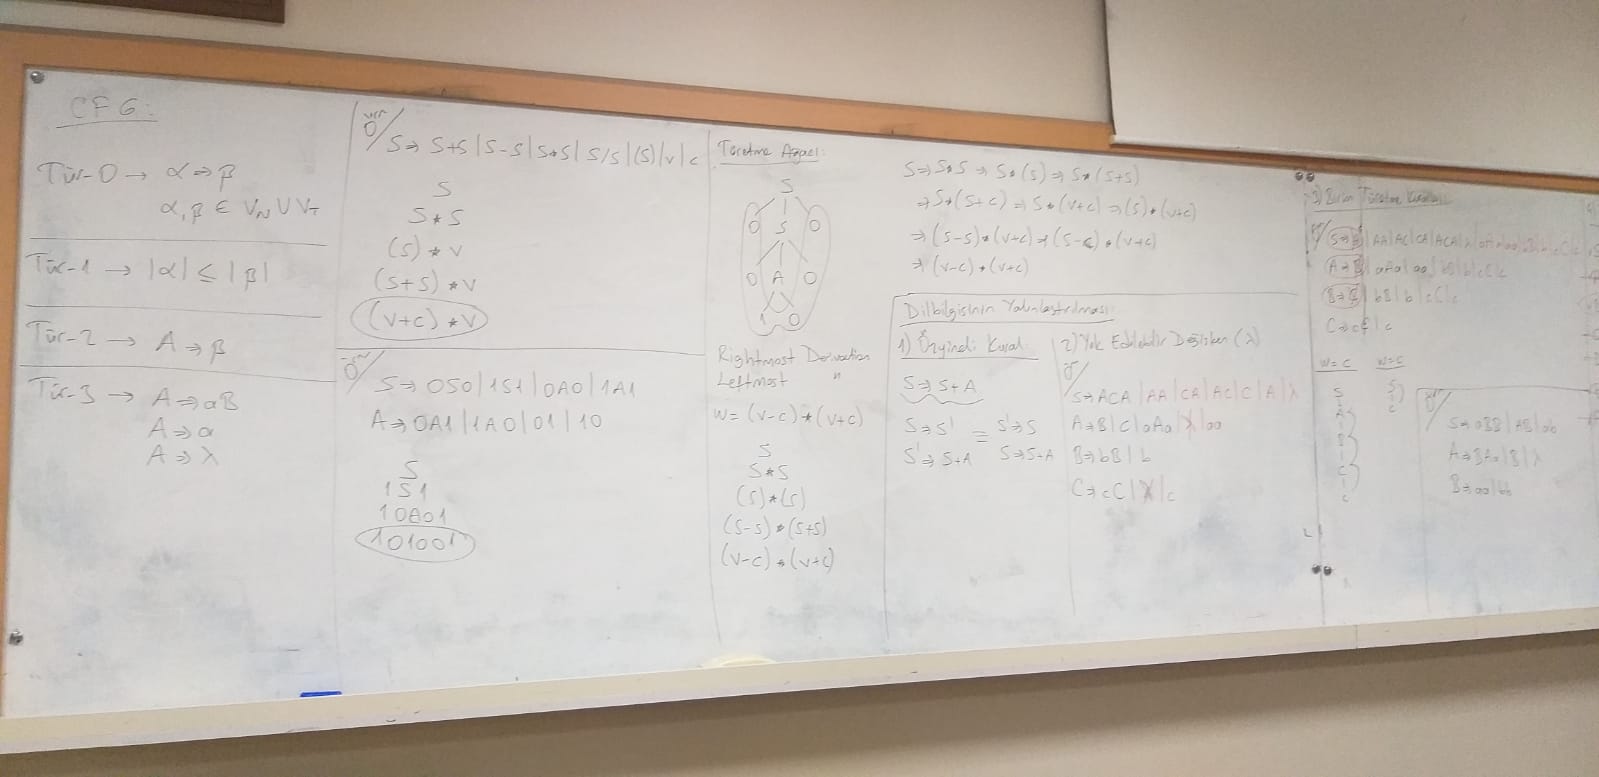 CFG:
Tür-0 → α ⇒ β
α, β ∈ V_N ∪ V_T
Tür-1 → |α| ≤ |β|
Tür-2 → A ⇒ β
Tür-3 → A ⇒ aB
A ⇒ a
A ⇒ λ
S ⇒ S+S | S-S | S*S | S/S | (S) | v | c
S
S*S
(S)*v
(S+S)*v
(v+c)*v
S ⇒ 0S0 | 1S1 | 0A0 | 1A1
A ⇒ 0A1 | 1A0 | 01 | 10
S
1S1
10A01
101001
Türetme Ağacı:
S
0 S 0
0 A 0
1 0
Rightmost Derivation
Leftmost "
w = (v-c)*(v+c)
S
S*S
(S)*(S)
(S-S)*(S+S)
(v-c)*(v+c)
S ⇒ S*S ⇒ S*(S) ⇒ S*(S+S)
⇒ S*(S+c) ⇒ S*(v+c) ⇒ (S)*(v+c)
⇒ (S-S)*(v+c) ⇒ (S-c)*(v+c)
⇒ (v-c)*(v+c)
Dilbilgisinin Yalınlaştırılması:
1) Özyineli Kural:
S ⇒ S+A
S ⇒ S' ≡ S' ⇒ S
S' ⇒ S+A S ⇒ S+A
2) Yok Edilebilir Değişken (λ)
ör/
S ⇒ ACA | AA | CA | AC | C | A | λ
A ⇒ B | C | aAa | λ | aa
B ⇒ bB | b
C ⇒ cC | λ | c
3) Birim Türetme Kuralları
A ⇒ B | aAa | aa | bB | b | cC | c
B ⇒ C | bB | b | cC | c
C ⇒ cC | c
w=c w=c
S
A
B
C
c
S
c
S ⇒ aBB | AB | ab
A ⇒ BAa | B | λ
B ⇒ aa | bb